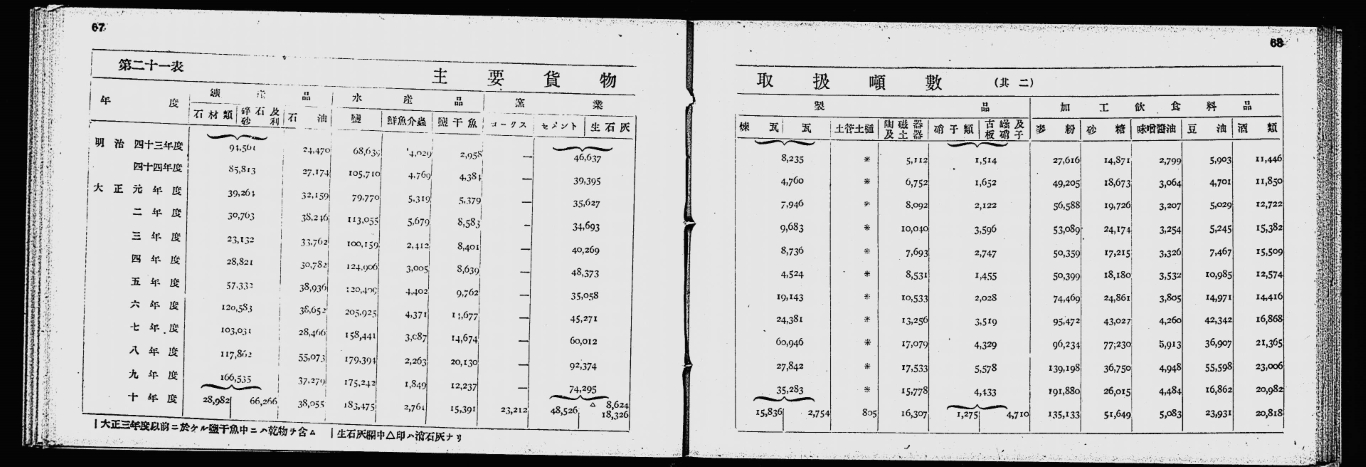 67
第二十一表 主要貨物
年度 鑛産品 水産品 窯業
石材類 碎石及砂利 石油 鹽 鮮魚介蟲 鹽干魚 コークス セメント 生石灰
明治四十三年度 94,561 24,470 68,639 4,029 2,958 — 46,637
四十四年度 85,813 27,174 105,710 4,769 4,384 — 39,395
大正元年度 39,264 32,159 79,770 5,319 5,379 — 35,627
二年度 30,763 38,246 113,055 5,679 8,583 — 34,693
三年度 23,132 33,762 100,159 2,412 8,401 — 40,269
四年度 28,821 30,782 124,906 3,005 8,639 — 48,373
五年度 57,332 38,936 120,409 4,402 9,762 — 35,058
六年度 120,583 38,652 205,925 4,371 — 45,271
七年度 103,031 28,466 158,441 3,087 14,674 — 60,012
八年度 117,862 55,073 179,394 2,263 20,130 — 92,374
九年度 166,535 37,279 175,242 1,849 12,237 — 74,295
十年度 28,982 66,266 38,055 183,475 2,761 15,391 23,212 48,526 △ 8,624 18,326
大正三年度以前ニ於ケル鹽干魚中ニハ乾物ヲ含ム 生石灰欄中△印ハ消石灰ナリ
68
取扱噸數 (其二)
製品 加工飮食料品
煉瓦 瓦 土管土樋 陶磁器及土器 硝子類 古硝子及板硝子 麥粉 砂糖 味噌醬油 豆油 酒類
8,235 * 5,112 1,514 27,616 14,871 2,799 5,903 11,446
4,760 * 6,752 1,652 49,205 18,673 3,064 4,701 11,850
7,946 * 8,092 2,122 56,588 19,726 3,207 5,029 12,722
9,683 * 10,040 3,596 53,089 24,174 3,254 5,245 15,382
8,736 * 7,693 2,747 50,359 17,215 3,326 7,467 15,509
4,524 * 8,531 1,455 50,399 18,180 3,532 10,985 12,574
19,143 * 10,533 2,028 74,469 24,861 3,805 14,971 14,416
24,381 * 13,256 3,519 95,472 43,027 4,260 42,342 16,868
60,946 * 17,079 4,329 96,234 77,230 5,913 36,907 21,365
27,842 * 17,533 5,578 139,198 36,750 4,948 55,598 23,006
35,283 * 15,778 4,433 191,880 26,015 4,484 16,862 20,982
15,836 2,754 805 16,307 1,275 4,710 135,133 51,649 5,083 23,931 20,818